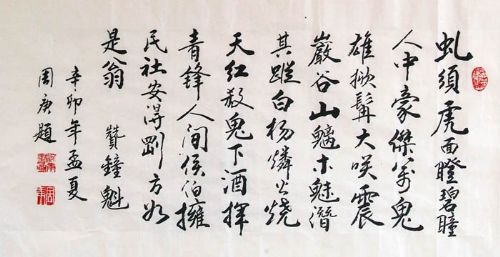 虬須虎面瞪碧瞳
人中豪傑萬鬼
雄掀髯大咲震
巖谷山魑木魅潛
其蹤白楊燐火燒
天紅殺鬼下酒揮
青鋒人间侯伯擁
民社安得剛方如
是翁 贊鐘魁
辛卯年孟夏
周庚題